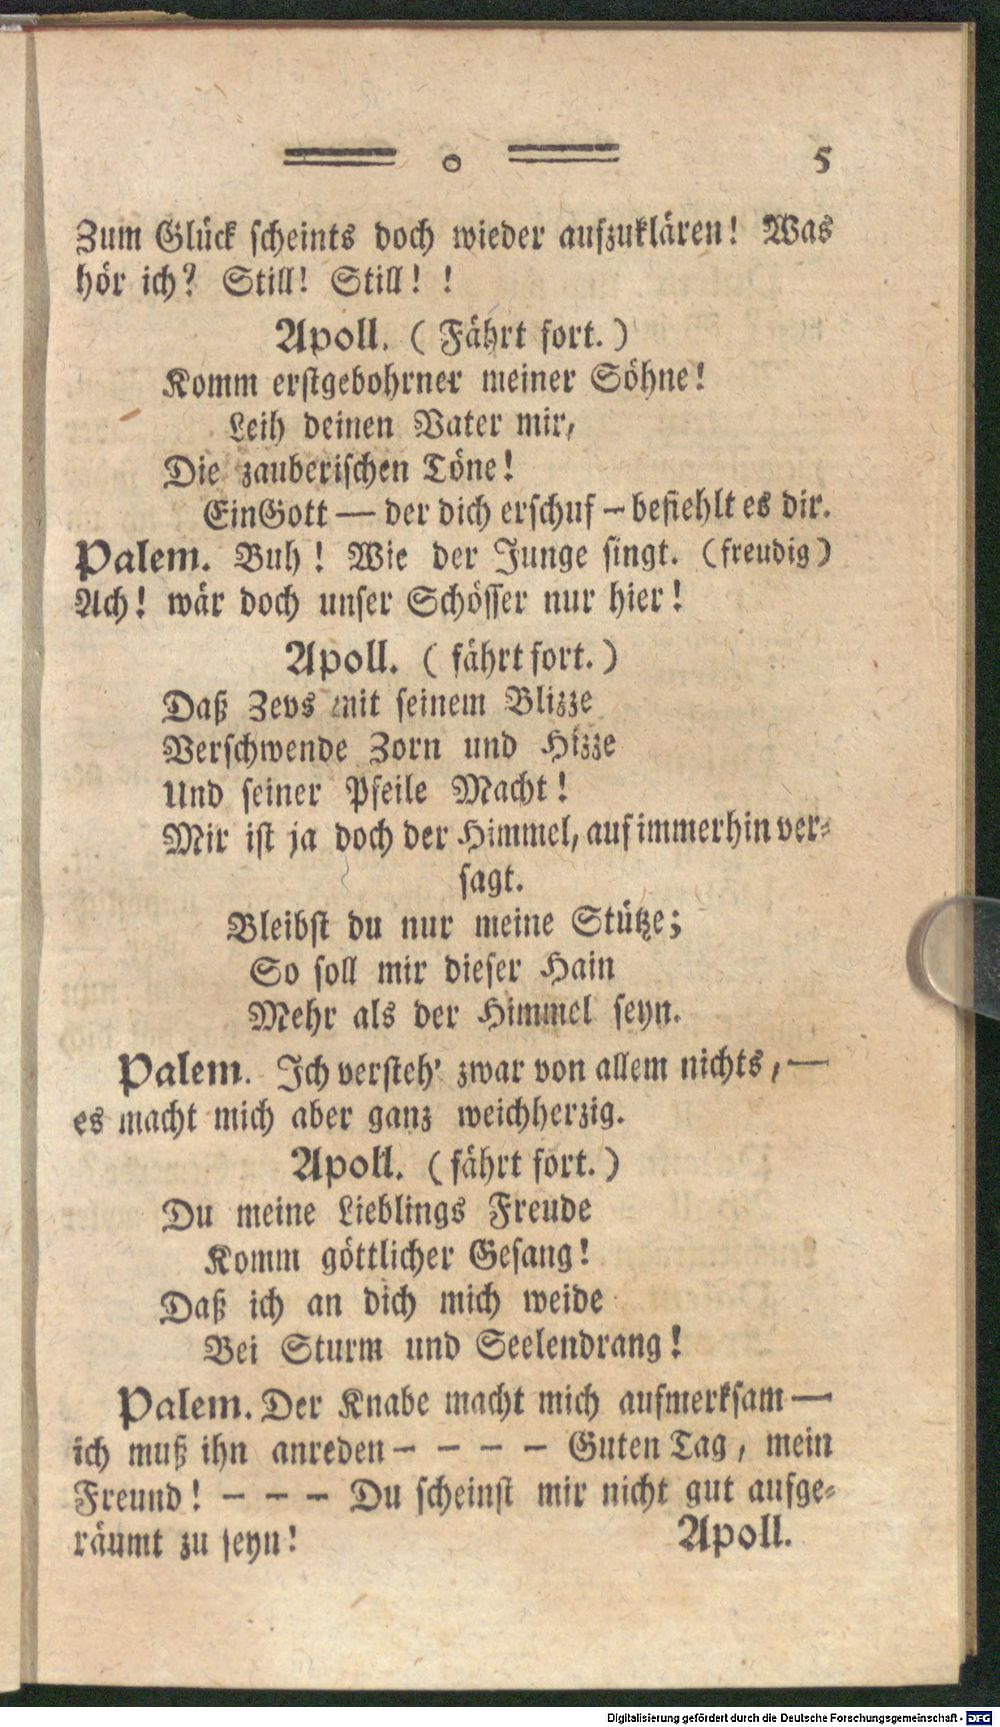 5
Zum Glück scheints doch wieder aufzuklären! Was
hör ich? Still! Still! !
Apoll. (Fährt fort.)
Komm erstgebohrner meiner Söhne!
Leih deinen Vater mir,
Die zauberischen Töne!
Ein Gott — der dich erschuf – befiehlt es dir.
Palem. Buh! Wie der Junge singt. (freudig)
Ach! wär doch unser Schösser nur hier!
Apoll. (fährt fort.)
Daß Zevs mit seinem Blizze
Verschwende Zorn und Hizze
Und seiner Pfeile Macht!
Mir ist ja doch der Himmel, auf immerhin ver-
sagt.
Bleibst du nur meine Stütze;
So soll mir dieser Hain
Mehr als der Himmel seyn.
Palem. Ich versteh' zwar von allem nichts, —
es macht mich aber ganz weichherzig.
Apoll. (fährt fort.)
Du meine Lieblings Freude
Komm göttlicher Gesang!
Daß ich an dich mich weide
Bei Sturm und Seelendrang!
Palem. Der Knabe macht mich aufmerksam —
ich muß ihn anreden – – – – Guten Tag, mein
Freund! – – – Du scheinst mir nicht gut aufge-
räumt zu seyn!
Apoll.
Digitalisierung gefördert durch die Deutsche Forschungsgemeinschaft - DFG